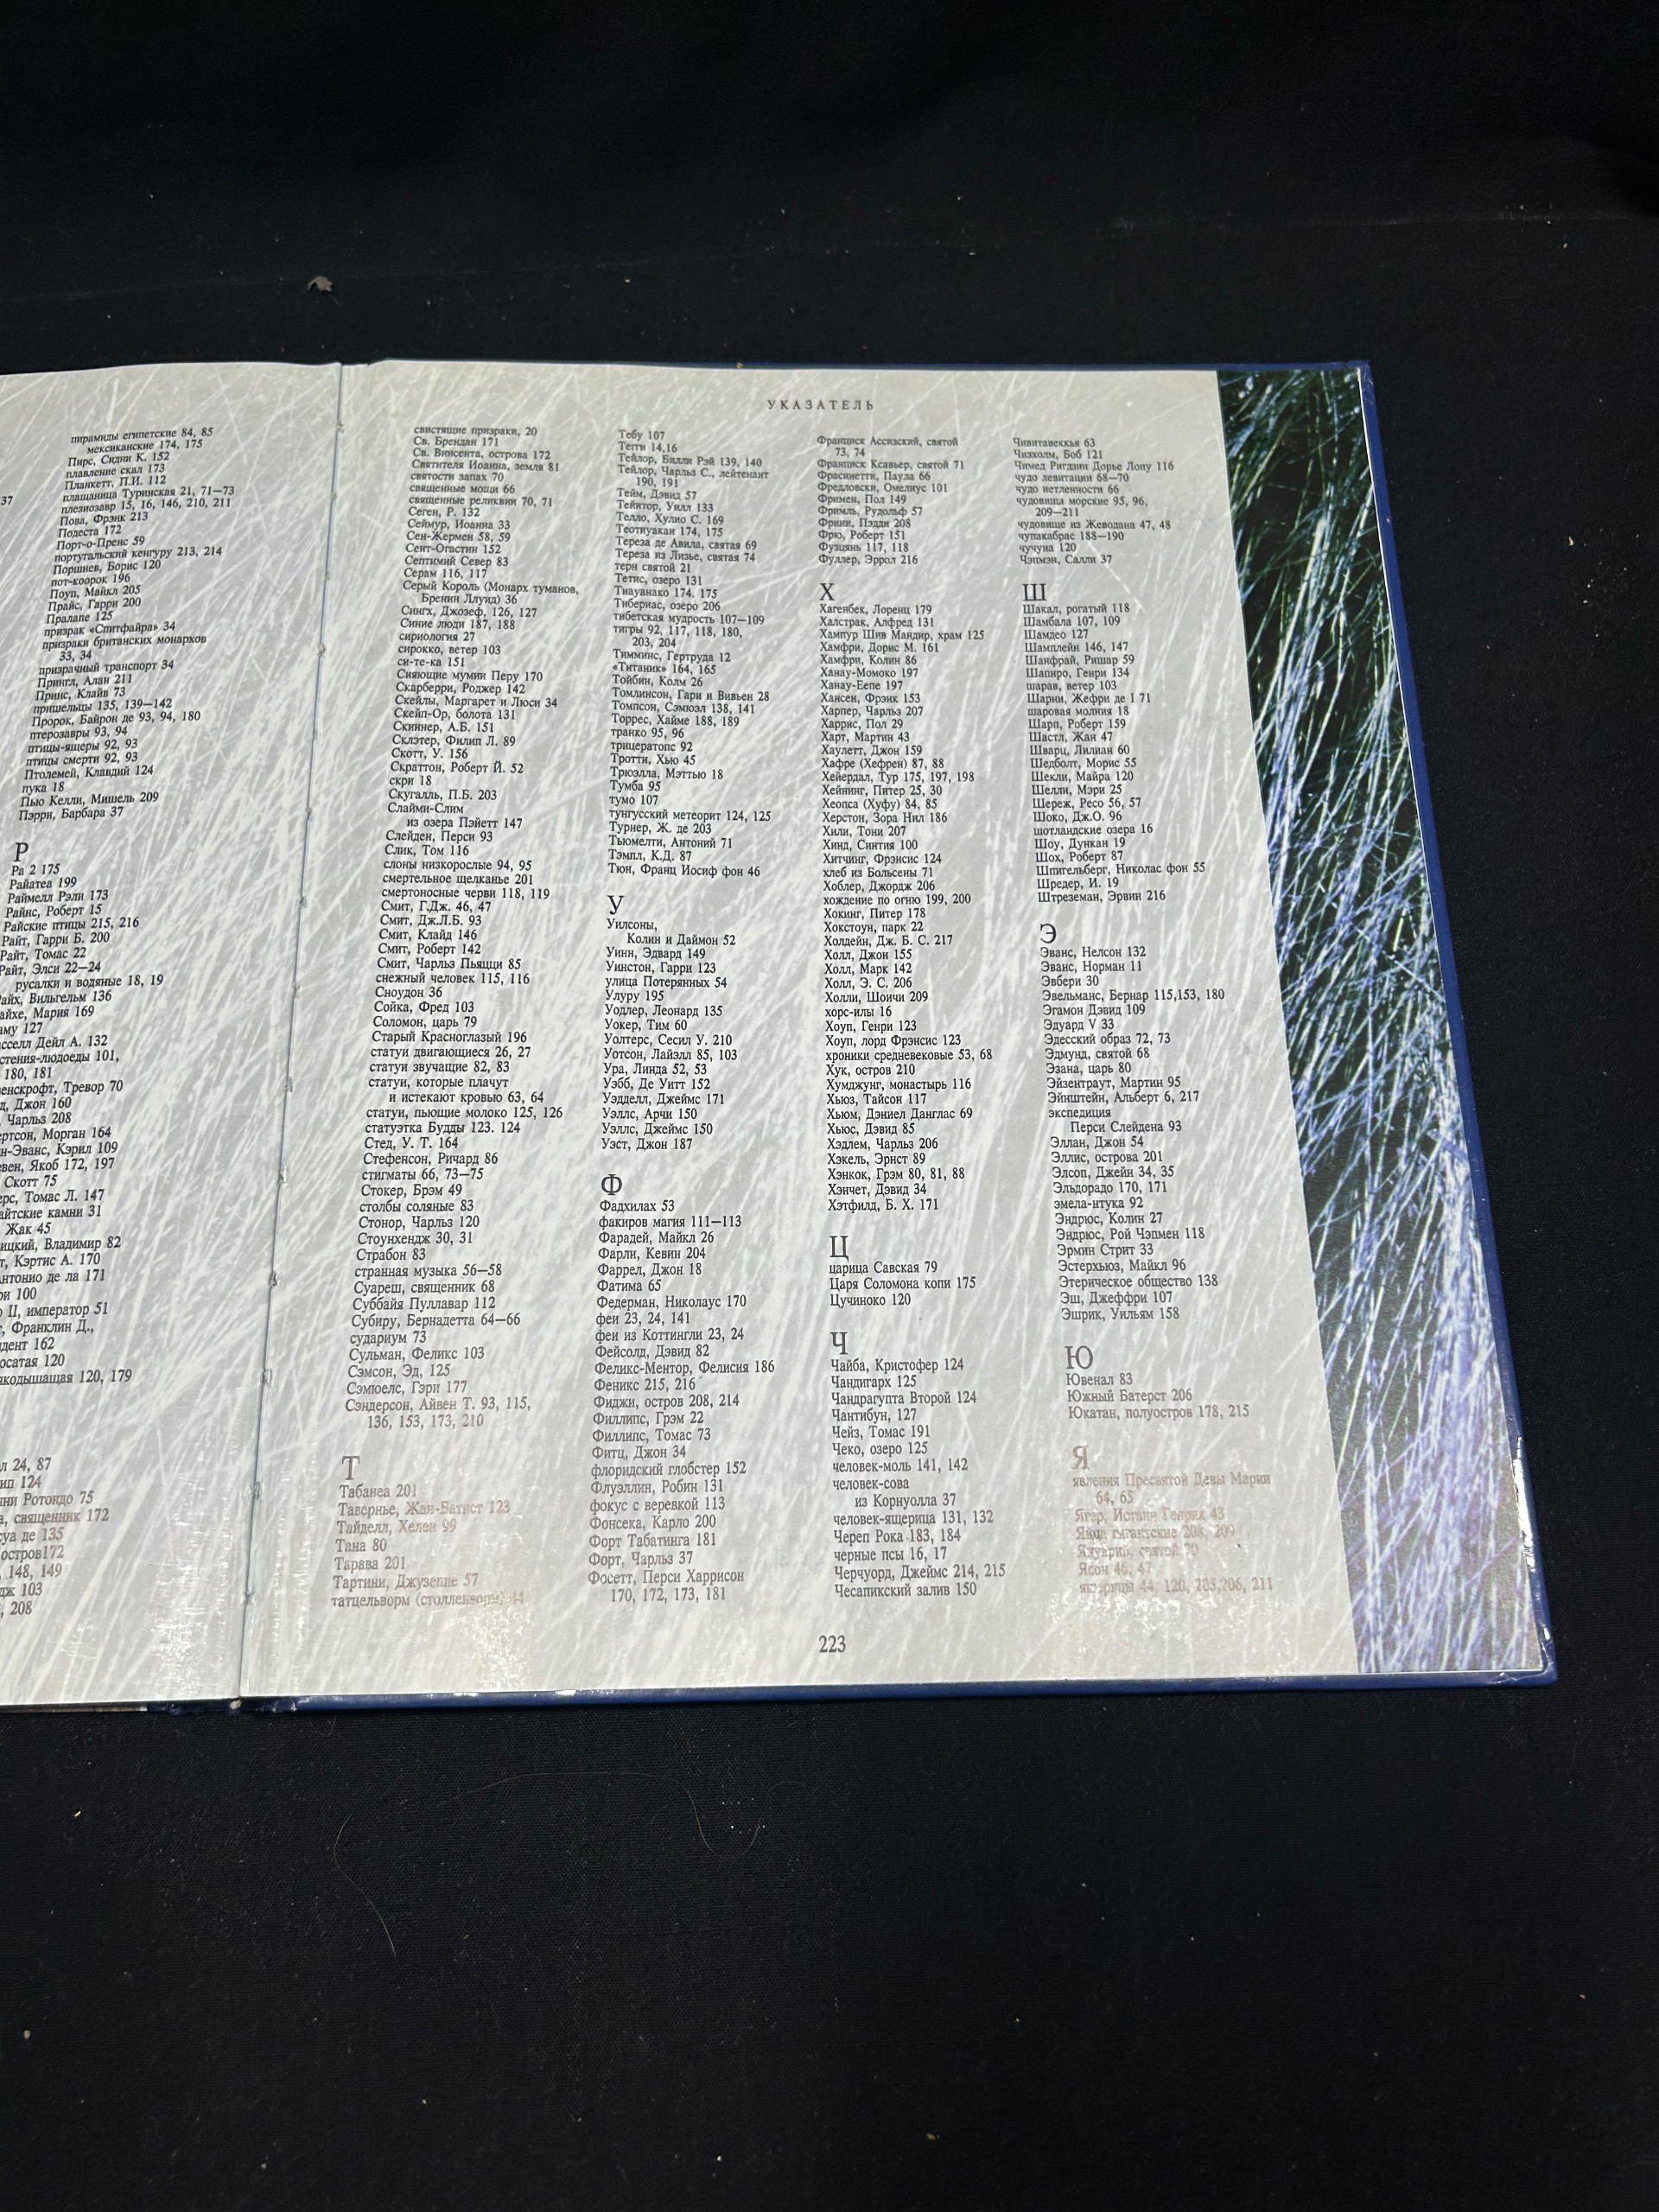 37
пирамиды египетские 84, 85
мексиканские 174, 175
Пирс, Сидни К. 152
плавление скал 173
Планкетт, П.И. 112
плащаница Туринская 21, 71—73
плезиозавр 15, 16, 146, 210, 211
Пова, Фрэнк 213
Подеста 172
Порт-о-Пренс 59
португальский кенгуру 213, 214
Поршнев, Борис 120
пот-коорок 196
Поуп, Майкл 205
Прайс, Гарри 200
Пралапе 125
призрак «Спитфайра» 34
призраки британских монархов
33, 34
призрачный транспорт 34
Прингл, Алан 211
Принс, Клайв 73
пришельцы 135, 139—142
Пророк, Байрон де 93, 94, 180
птерозавры 93, 94
птицы-ящеры 92, 93
птицы смерти 92, 93
Птолемей, Клавдий 124
пука 18
Пью Келли, Мишель 209
Пэрри, Барбара 37
Р
Ра 2 175
Райатеа 199
Раймелл Рэли 173
Райнс, Роберт 15
Райские птицы 215, 216
Райт, Гарри Б. 200
Райт, Томас 22
Райт, Элси 22—24
русалки и водяные 18, 19
айх, Вильгельм 136
айхе, Мария 169
аму 127
сселл Дейл А. 132
стения-людоеды 101,
180, 181
енскрофт, Тревор 70
д, Джон 160
Чарльз 208
ертсон, Морган 164
н-Эванс, Кэрил 109
вен, Якоб 172, 197
Скотт 75
ерс, Томас Л. 147
айтские камни 31
Жак 45
ицкий, Владимир 82
т, Кэртис А. 170
Антонио де ла 171
ри 100
о II, император 51
т, Франклин Д.,
дент 162
осатая 120
кодышащая 120, 179
л 24, 87
ип 124
нни Ротондо 75
а, священник 172
суа де 135
остров172
, 148, 149
дж 103
, 208
УКАЗАТЕЛЬ
свистящие призраки, 20
Св. Брендан 171
Св. Винсента, острова 172
Святителя Иоанна, земля 81
святости запах 70
священные мощи 66
священные реликвии 70, 71
Сеген, Р. 132
Сеймур, Иоанна 33
Сен-Жермен 58, 59
Сент-Огастин 152
Септимий Север 83
Серам 116, 117
Серый Король (Монарх туманов,
Бренин Ллуид) 36
Сингх, Джозеф, 126, 127
Синие люди 187, 188
сириология 27
сирокко, ветер 103
си-те-ка 151
Сияющие мумии Перу 170
Скарберри, Роджер 142
Скейлы, Маргарет и Люси 34
Скейп-Ор, болота 131
Скиннер, А.Б. 151
Склэтер, Филип Л. 89
Скотт, У. 156
Скраттон, Роберт Й. 52
скри 18
Скугалль, П.Б. 203
Слайми-Слим
из озера Пэйетт 147
Слейден, Перси 93
Слик, Том 116
слоны низкорослые 94, 95
смертельное щелканье 201
смертоносные черви 118, 119
Смит, Г.Дж. 46, 47
Смит, Дж.Л.Б. 93
Смит, Клайд 146
Смит, Роберт 142
Смит, Чарльз Пьяцци 85
снежный человек 115, 116
Сноудон 36
Сойка, Фред 103
Соломон, царь 79
Старый Красноглазый 196
статуи двигающиеся 26, 27
статуи звучащие 82, 83
статуи, которые плачут
и истекают кровью 63, 64
статуи, пьющие молоко 125, 126
статуэтка Будды 123. 124
Стед, У. Т. 164
Стефенсон, Ричард 86
стигматы 66, 73—75
Стокер, Брэм 49
столбы соляные 83
Стонор, Чарльз 120
Стоунхендж 30, 31
Страбон 83
странная музыка 56—58
Суареш, священник 68
Суббайя Пуллавар 112
Субиру, Бернадетта 64—66
судариум 73
Сульман, Феликс 103
Сэмсон, Эд, 125
Сэмюелс, Гэри 177
Сэндерсон, Айвен Т. 93, 115,
136, 153, 173, 210
Т
Табанеа 201
Тавернье, Жан-Батист 123
Тайделл, Хелен 99
Тана 80
Тарава 201
Тартини, Джузеппе 57
татцельворм (столленворм) 44
Тебу 107
Тегги 14,16
Тейлор, Билли Рэй 139, 140
Тейлор, Чарльз С., лейтенант
190, 191
Тейм, Дэвид 57
Тейнтор, Уилл 133
Телло, Хулио С. 169
Теотиуакан 174, 175
Тереза де Авила, святая 69
Тереза из Лизье, святая 74
терн святой 21
Тетис, озеро 131
Тиауанако 174. 175
Тибериас, озеро 206
тибетская мудрость 107—109
тигры 92, 117, 118, 180,
203, 204
Тимминс, Гертруда 12
«Титаник» 164, 165
Тойбин, Колм 26
Томлинсон, Гари и Вивьен 28
Томпсон, Сэмюэл 138, 141
Торрес, Хайме 188, 189
транко 95, 96
трицератопс 92
Тротти, Хью 45
Трюэлла, Мэттью 18
Тумба 95
тумо 107
тунгусский метеорит 124, 125
Турнер, Ж. де 203
Тьюмелти, Антоний 71
Тэмпл, К.Д. 87
Тюн, Франц Иосиф фон 46
У
Уилсоны,
Колин и Даймон 52
Уинн, Эдвард 149
Уинстон, Гарри 123
улица Потерянных 54
Улуру 195
Уодлер, Леонард 135
Уокер, Тим 60
Уолтерс, Сесил У. 210
Уотсон, Лайэлл 85, 103
Ура, Линда 52, 53
Уэбб, Де Уитт 152
Уэдделл, Джеймс 171
Уэллс, Арчи 150
Уэллс, Джеймс 150
Уэст, Джон 187
Ф
Фадхилах 53
факиров магия 111—113
Фарадей, Майкл 26
Фарли, Кевин 204
Фаррел, Джон 18
Фатима 65
Федерман, Николаус 170
феи 23, 24, 141
феи из Коттингли 23, 24
Фейсолд, Дэвид 82
Феликс-Ментор, Фелисия 186
Феникс 215, 216
Фиджи, остров 208, 214
Филлипс, Грэм 22
Филлипс, Томас 73
Фитц, Джон 34
флоридский глобстер 152
Флуэллин, Робин 131
фокус с веревкой 113
Фонсека, Карло 200
Форт Табатинга 181
Форт, Чарльз 37
Фосетт, Перси Харрисон
170, 172, 173, 181
Франциск Ассизский, святой
73, 74
Франциск Ксавьер, святой 71
Фрасинетти, Паула 66
Фредловски, Омелиус 101
Фримен, Пол 149
Фримль, Рудольф 57
Фрини, Пэдди 208
Фрю, Роберт 151
Фузцянь 117, 118
Фуллер, Эррол 216
Х
Хагенбек, Лоренц 179
Халстрак, Алфред 131
Хампур Шив Мандир, храм 125
Хамфри, Дорис М. 161
Хамфри, Колин 86
Ханау-Момоко 197
Ханау-Еепе 197
Хансен, Фрэнк 153
Харпер, Чарльз 207
Харрис, Пол 29
Харт, Мартин 43
Хаулетт, Джон 159
Хафре (Хефрен) 87, 88
Хейердал, Тур 175, 197, 198
Хейнинг, Питер 25, 30
Хеопса (Хуфу) 84, 85
Херстон, Зора Нил 186
Хили, Тони 207
Хинд, Синтия 100
Хитчинг, Фрэнсис 124
хлеб из Больсены 71
Хоблер, Джордж 206
хождение по огню 199, 200
Хокинг, Питер 178
Хокстоун, парк 22
Холдейн, Дж. Б. С. 217
Холл, Джон 155
Холл, Марк 142
Холл, Э. С. 206
Холли, Шоичи 209
хорс-илы 16
Хоуп, Генри 123
Хоуп, лорд Фрэнсис 123
хроники средневековые 53, 68
Хук, остров 210
Хумджунг, монастырь 116
Хьюз, Тайсон 117
Хьюм, Дэниел Данглас 69
Хьюс, Дэвид 85
Хэдлем, Чарльз 206
Хэкель, Эрнст 89
Хэнкок, Грэм 80, 81, 88
Хэнчет, Дэвид 34
Хэтфилд, Б. Х. 171
Ц
царица Савская 79
Царя Соломона копи 175
Цучиноко 120
Ч
Чайба, Кристофер 124
Чандигарх 125
Чандрагупта Второй 124
Чантибун, 127
Чейз, Томас 191
Чеко, озеро 125
человек-моль 141, 142
человек-сова
из Корнуолла 37
человек-ящерица 131, 132
Череп Рока 183, 184
черные псы 16, 17
Черчуорд, Джеймс 214, 215
Чесапикский залив 150
Чивитавеккья 63
Чизхолм, Боб 121
Чимед Ригдзин Дорье Лопу 116
чудо левитации 68—70
чудо нетленности 66
чудовища морские 95, 96,
209—211
чудовище из Жеводана 47, 48
чупакабрас 188—190
чучуна 120
Чэпмэн, Салли 37
Ш
Шакал, рогатый 118
Шамбала 107, 109
Шамдео 127
Шамплейн 146, 147
Шанфрай, Ришар 59
Шапиро, Генри 134
шарав, ветер 103
Шарни, Жефри де I 71
шаровая молния 18
Шарп, Роберт 159
Шастл, Жан 47
Шварц, Лилиан 60
Шедболт, Морис 55
Шекли, Майра 120
Шелли, Мэри 25
Шереж, Ресо 56, 57
Шоко, Дж.О. 96
шотландские озера 16
Шоу, Дункан 19
Шох, Роберт 87
Шпигельберг, Николас фон 55
Шредер, И. 19
Штреземан, Эрвин 216
Э
Эванс, Нелсон 132
Эванс, Норман 11
Эвбери 30
Эвельманс, Бернар 115,153, 180
Эгамон Дэвид 109
Эдуард V 33
Эдесский образ 72, 73
Эдмунд, святой 68
Эзана, царь 80
Эйзентраут, Мартин 95
Эйнштейн, Альберт 6, 217
экспедиция
Перси Слейдена 93
Эллан, Джон 54
Эллис, острова 201
Элсоп, Джейн 34, 35
Эльдорадо 170, 171
эмела-нтука 92
Эндрюс, Колин 27
Эндрюс, Рой Чэпмен 118
Эрмин Стрит 33
Эстерхьюз, Майкл 96
Этерическое общество 138
Эш, Джеффри 107
Эшрик, Уильям 158
Ю
Ювенал 83
Южный Батерст 206
Юкатан, полуостров 178, 215
Я
явления Пресвятой Девы Марии
64, 65
Ягер, Иоганн Генрих 43
Яйца гигантские 208, 209
Януарий, святой 70
Ясон 46, 47
ящерицы 44, 120, 205,206, 211
223